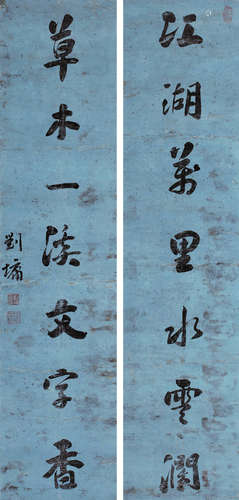 江湖萬里水雲濶
草木一溪文字香
劉墉